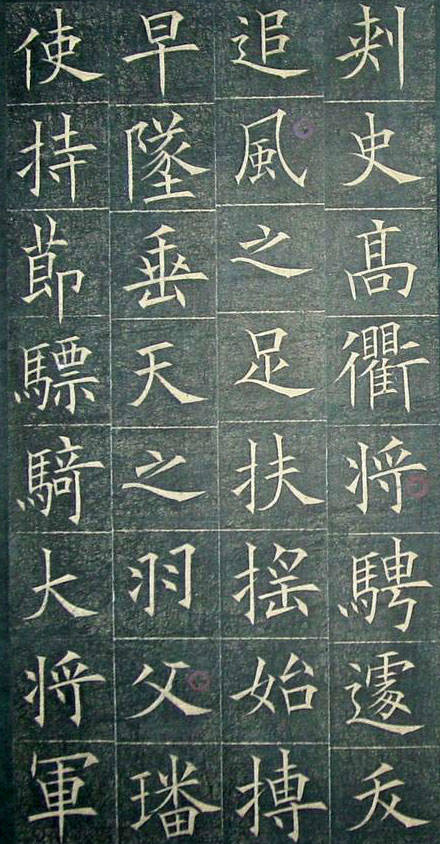 刺史高衢將騁遽夭
追風之足扶搖始摶
早墜垂天之羽父璠
使持節驃騎大將軍